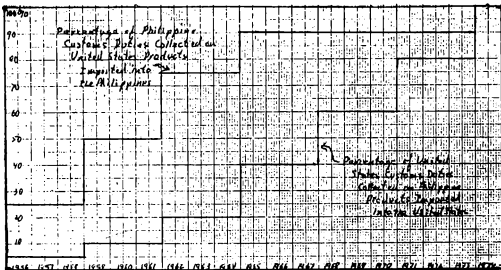 100%
90
Percentage of Philippine
Customs Duties Collected on
United States Products
Imported into
the Philippines
80
70
60
50
40
30
20
10
Percentage of United
States Customs Duties
Collected on Philippine
Products Imported
Into the United States
1956 1957 1958 1959 1960 1961 1962 1963 1964 1965 1966 1967 1968 1969 1970 1971 1972 1973